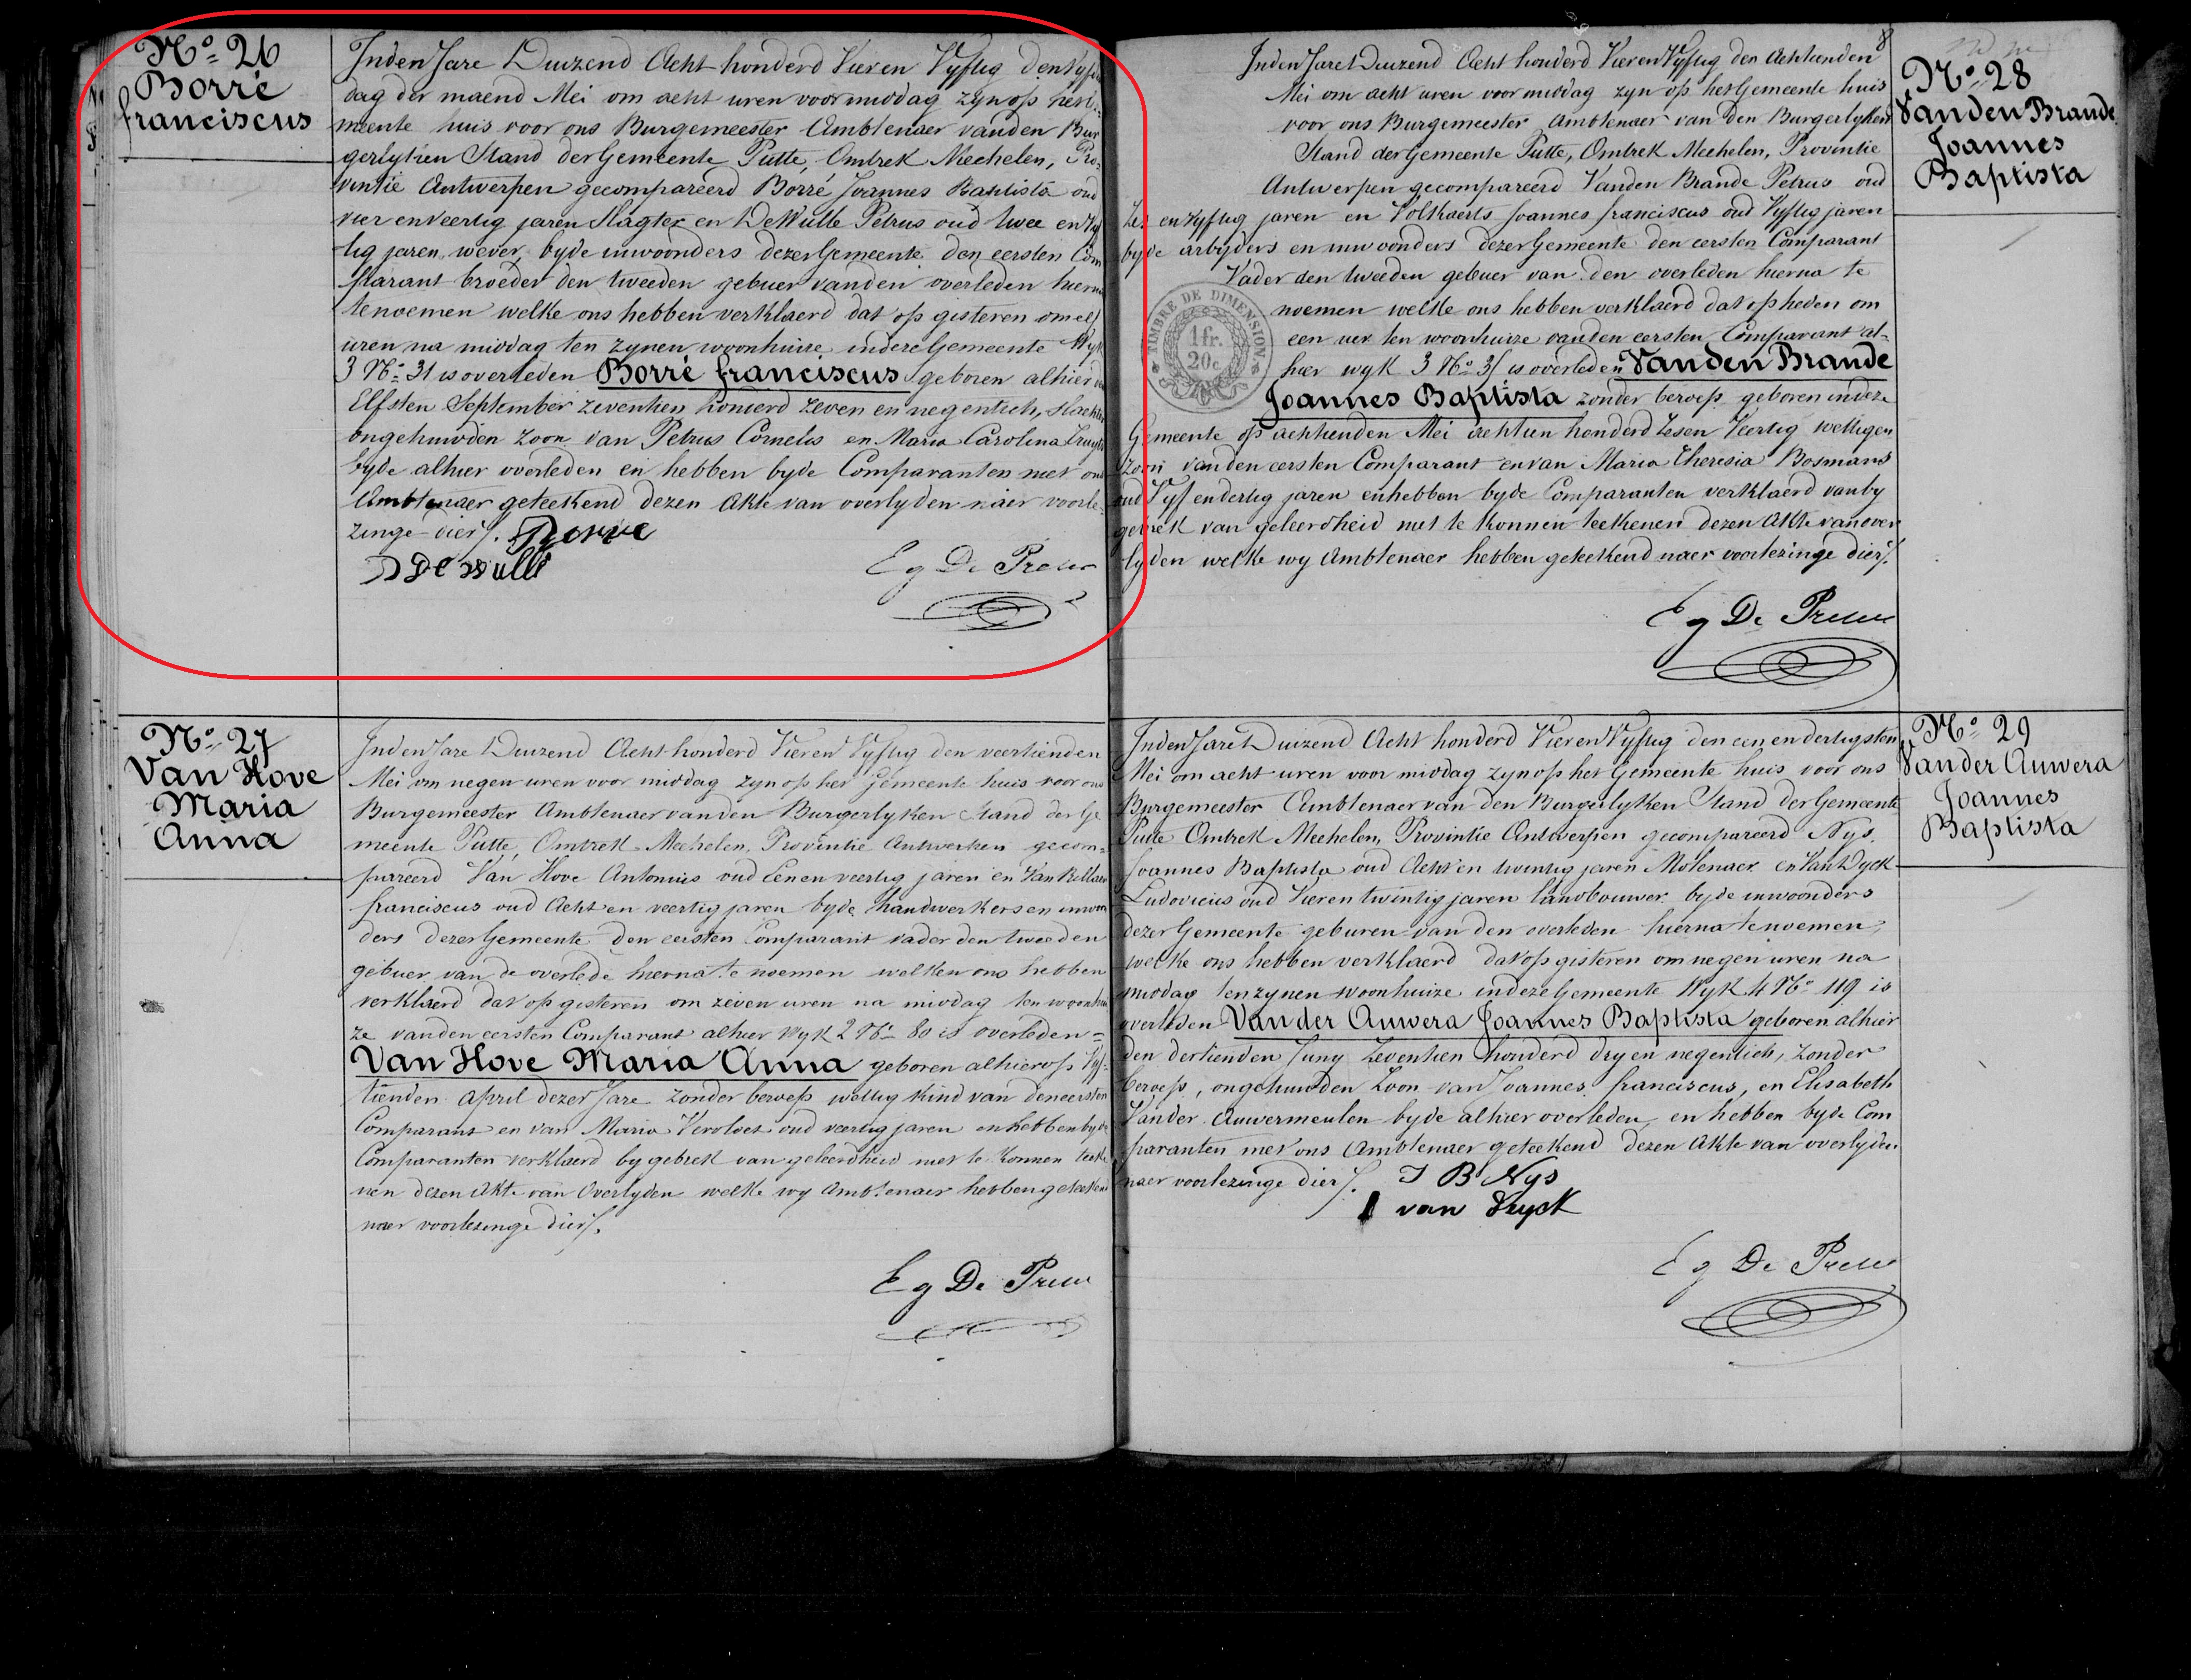 No 26
Borré
franciscus
In den Jare Duizend Acht honderd Vier en Vyftig den
dag der maend Mei om acht uren voormiddag zyn op het
meente huis voor ons Burgemeester Ambtenaer van den Bur
gerlyken Stand der Gemeente Putte, Omtrek Mechelen, Pro-
vintie Antwerpen gecompareerd Borré Joannes Baptista oud
vier en veertig jaren Slagter en De Wulle Petrus oud twee en
tig jaren wever, byde inwoonders dezer Gemeente den eersten Com
parant broeder den tweeden gebuer van den overleden hierna
te noemen welke ons hebben verklaerd dat op gisteren om elf
uren na middag ten zynen woonhuize in deze Gemeente Wyk
3 No 31 is overleden Borré franciscus geboren alhier
Elfsten September zeventien honderd zeven en negentich,
ongehuwden zoon van Petrus Cornelis en Maria Carolina
byde alhier overleden en hebben byde Comparanten met ons
Ambtenaer geteekend dezen Akte van overlyden naer voorle-
zinge dier/.
Borre
De Wulle
Eg De Preter
No 27
Van Hove
Maria
Anna
In den Jare Duizend Acht honderd Vier en Vyftig den veertienden
Mei om negen uren voor middag zyn op het Gemeente huis voor ons
Burgemeester Ambtenaer van den Burgerlyken Stand der Ge
meente Putte, Omtrek Mechelen, Provintie Antwerpen gecom=
pareerd Van Hove Antonius oud Een en veertig jaren en
franciscus oud Acht en veertig jaren byde handwerkers en inwoon
ders dezer Gemeente den eersten Comparant vader den tweeden
gebuer van de overlede hierna te noemen welken ons hebben
verklaerd dat op gisteren om zeven uren na middag ten woonhui
ze van den eersten Comparant alhier Wyk 2 No 80 is overleden =
Van Hove Maria Anna geboren alhier op Vyf-
tienden April dezer Jare zonder beroep wettig kind van den eersten
Comparant en van Maria Vervloet oud veertig jaren en hebben byde
Comparanten verklaerd by gebrek van geleerdheid niet te konnen teeke
nen dezen Akte van Overlyden welke wy Ambtenaer hebben geteekend
naer voorlezinge dier/.
Eg De Preter
8
No 28
Vanden Brande
Joannes
Baptista
In den Jare Duizend Acht honderd Vier en Vyftig den Achtienden
Mei om acht uren voor middag zyn op het Gemeente huis
voor ons Burgemeester Ambtenaer van den Burgerlyken
Stand der Gemeente Putte, Omtrek Mechelen, Provintie
Antwerpen gecompareerd Vanden Brande Petrus oud
Zes en vyftig jaren en Volkaerts Joannes franciscus oud Vyftig jaren
byde arbyders en inwoonders dezer Gemeente den eersten Comparant
Vader den tweeden gebuer van den overleden hierna te
noemen welke ons hebben verklaerd dat op heden om
een uer ten woonhuize van den eersten Comparant al=
hier wyk 3 No is overleden Vanden Brande
Joannes Baptista zonder beroep geboren in deze
Gemeente op achtienden Mei achtien honderd Zes en Veertig wettigen
zoon van den eersten Comparant en van Maria Theresia Bosmans
oud Vyf en dertig jaren en hebben byde Comparanten verklaerd van by
gebrek van geleerdheid niet te konnen teekenen dezen Akte van over
lyden welke wy Ambtenaer hebben geteekend naer voorlezinge dier/.
TIMBRE DE DIMENSION
1 fr.
20 c.
Eg De Preter
No 29
Van der Auwera
Joannes
Baptista
In den Jare Duizend Acht honderd Vier en Vyftig den een en dertigsten
Mei om acht uren voor middag zyn op het Gemeente huis voor ons
Burgemeester Ambtenaer van den Burgerlyken Stand der Gemeente
Putte Omtrek Mechelen, Provintie Antwerpen gecompareerd Nys
Joannes Baptista oud Acht en twintig jaren Molenaer en Van Dyck
Ludovicus oud Vier en twintig jaren landbouwer byde inwoonders
dezer Gemeente geburen van den overleden hierna te noemen,
welke ons hebben verklaerd dat op gisteren om negen uren na
middag ten zynen woonhuize in deze Gemeente Wyk 4 No 119 is
overleden Van der Auwera Joannes Baptista geboren alhier
den dertienden Juny Zeventien honderd dry en negentich, zonder
beroep, ongehuwden Zoon van Joannes franciscus, en Elisabeth
Vander Auwermeulen byde alhier overleden, en hebben byde Com
paranten met ons Ambtenaer geteekend dezen Akte van overlyden
naer voorlezinge dier/.
J B Nys
van Dyck
Eg De Preter